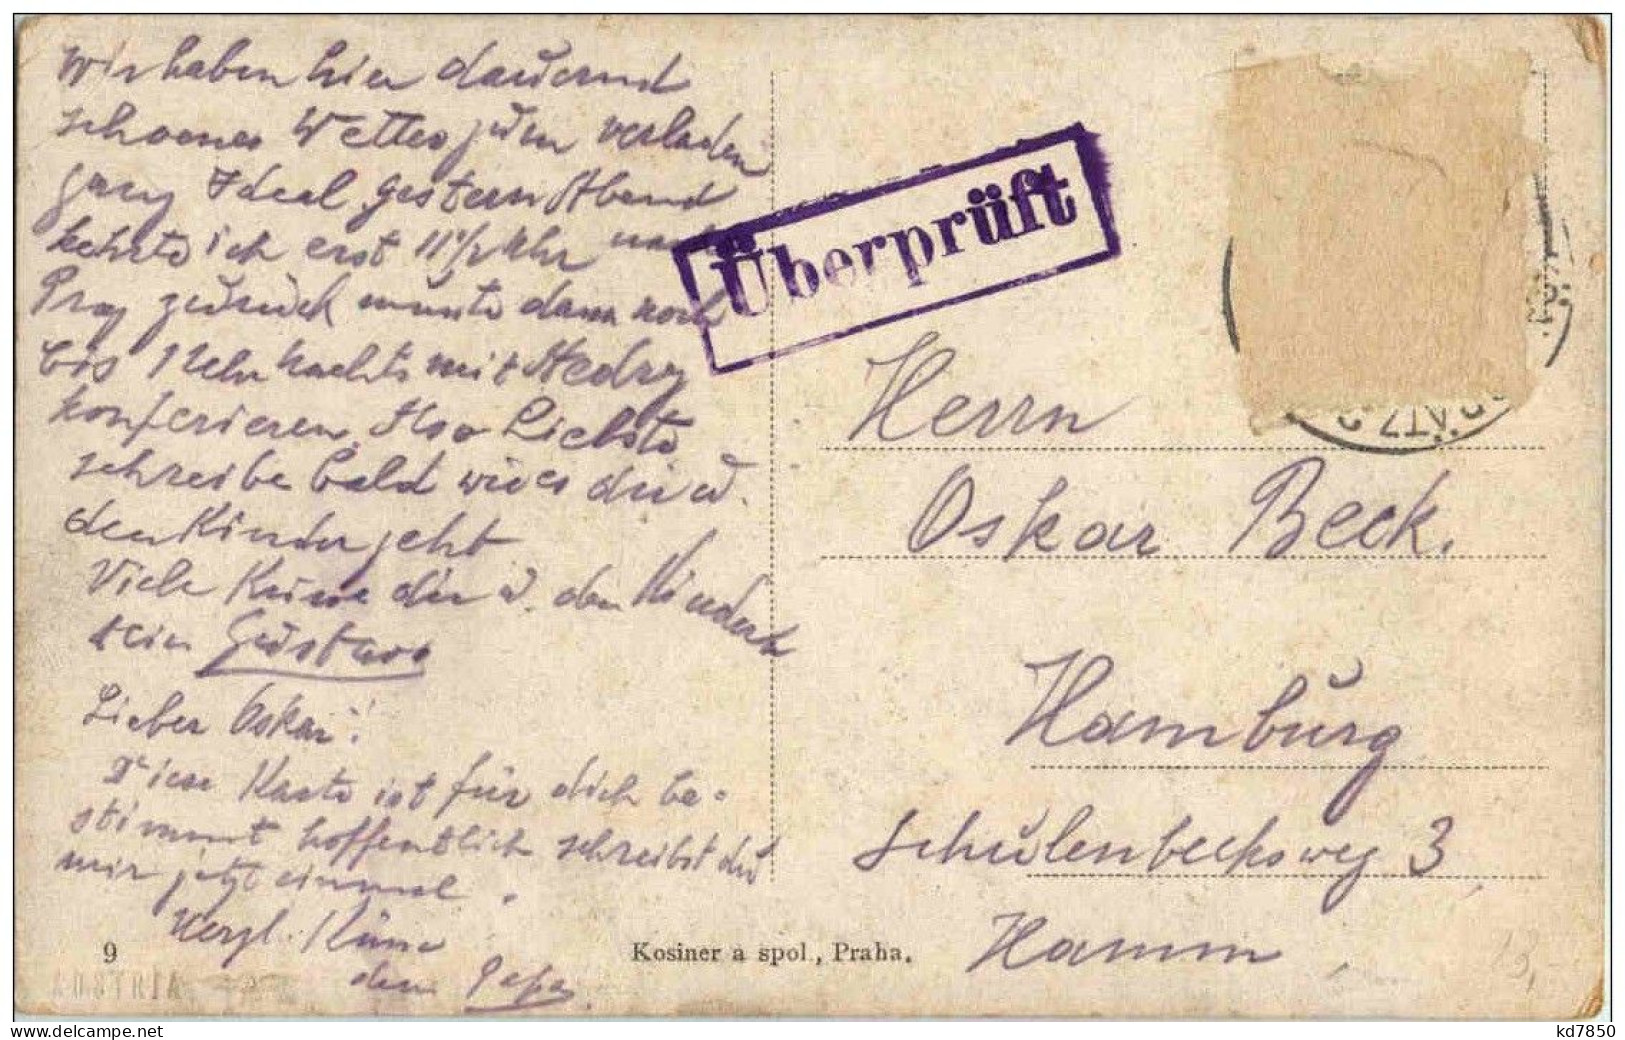 Wir haben hier dauernd
schoenes Wetter zum verladen
ganz Ideal. Gestern Abend
kehrte ich erst 11 1/2 Uhr nach
Prag zurück musste dann noch
bis 1 Uhr nachts mit
konferieren. Also Liebste
schreibe bald wie es dir u.
den Kinder geht
Viele Küsse dir u. den Kindern
dein Gustav
Lieber Oskar!
Diese Karte ist für dich be-
stimmt hoffentlich schreibst du
mir jetzt einmal.
Herzl. Küsse
dein Papa.
Überprüft
Herrn
Oskar Beck.
Hamburg
Schulenbecksweg 3
Hamm
9
Kosiner a spol., Praha.
kd7850